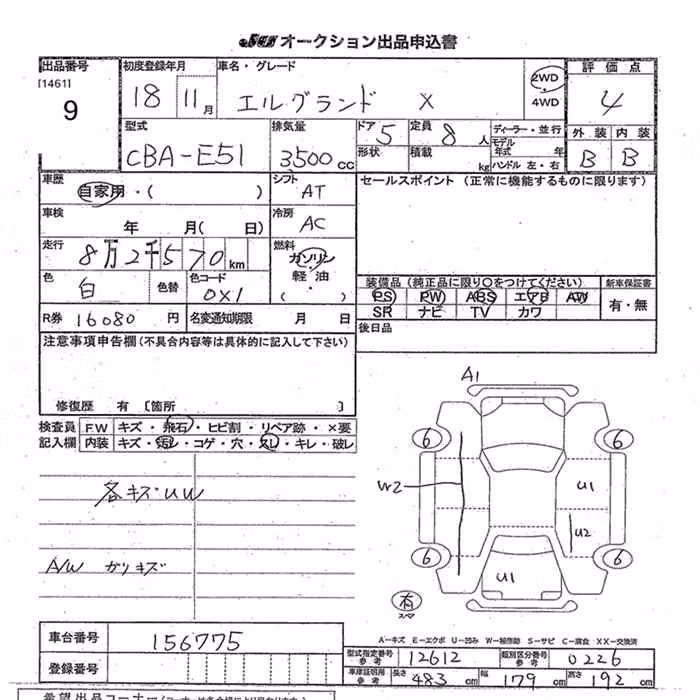 JCN オークション出品申込書
出品番号 初度登録年月 車名・グレード 2WD 評価点
[1461] 9 18 11月 エルグランド X 4WD 4
型式 排気量 ドア 5 定員 8人 ディーラー・並行 外装 内装
CBA-E51 3500cc 形状 積載 kg モデル年式 年 ハンドル 左・右 B B
車歴 自家用・( ) シフト AT セールスポイント (正常に機能するものに限ります)
車検 年 月( 日) 冷房 AC
走行 8万2千570km 燃料 ガソリン・軽油・( )
色 白 色替 色コード 0X1 装備品 (純正品に限り〇をつけてください) 新車保証書
PS PW ABS エアB AW 有・無
SR ナビ TV カワ
R券 16080円 名変通知期限 月 日 後日品
注意事項申告欄(不具合内容等は具体的に記入して下さい)
修復歴 有 [箇所 ]
A1
検査員 FW キズ・飛石・ヒビ割・リペア跡・×要
記入欄 内装 キズ・汚レ・コゲ・穴・スレ・キレ・破レ
6 6
各キズUW
W2 U1
U2
A/W ガリキズ
6 6
U1
有
スペア
A-キズ E-エクボ U-凹み W-補修跡 S-サビ C-腐食 XX-交換済
車台番号 156775 型式指定番号 参考 12612 類別区分番号 参考 0226
登録番号 車庫証明用 参考 長さ 483cm 幅 179cm 高さ 192cm
希望出品コーナー